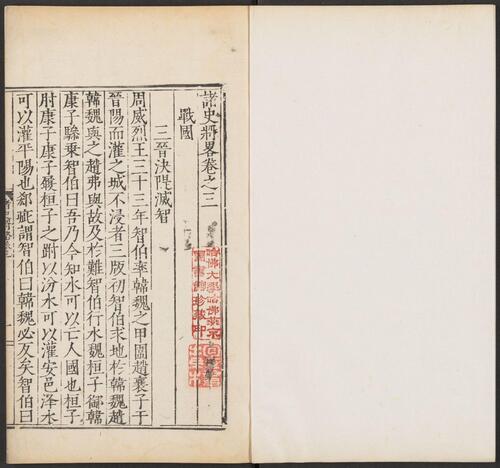 諸史將畧卷之三
戰國
三晉決隄滅智
周威烈王二十三年智伯率韓魏之甲圍趙襄子于
晉陽而灌之城不浸者三版初智伯求地於韓魏趙
韓魏與之趙弗與故及於難智伯行水魏桓子御韓
康子驂乗智伯曰吾乃今知水可以亡人國也桓子
肘康子康子發桓子之跗以汾水可以灌安邑絳水
可以灌平陽也郄疵謂智伯曰韓魏必反矣智伯曰
哈佛大學哈佛燕京
圖書館珍藏印